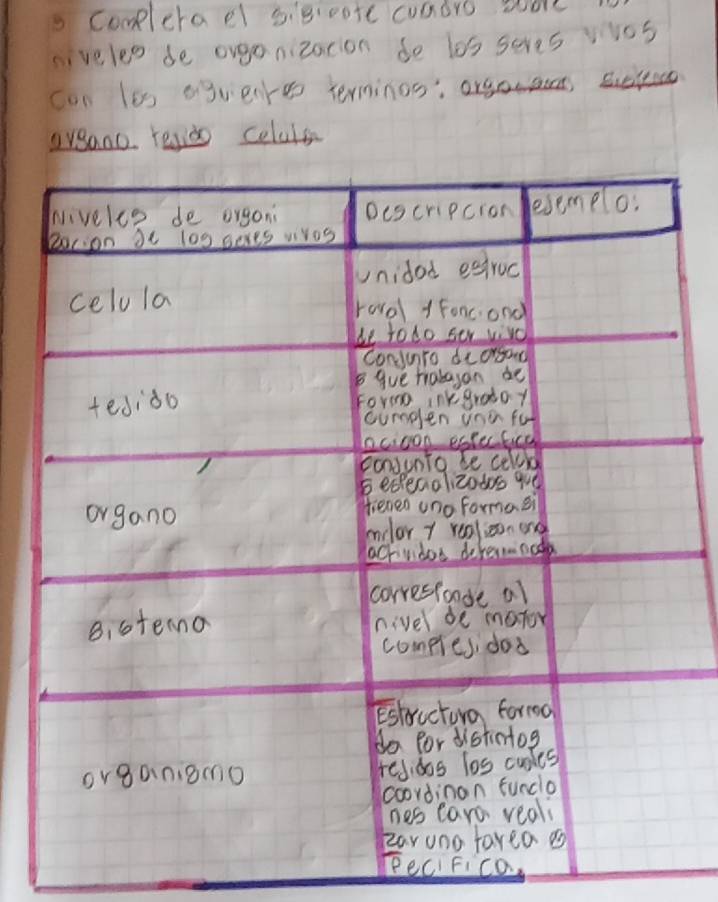 3 Completa el sigieote cuadro
niveles de organizacion de los seres vivos
con los siguientes terminos:
organo tejido celula
Niveles de organi
zacion de los seres vivos
Descripcion
ejemplo:
celula
unidad estruc
tural y funciond
de todo ser vivo
tejido
conjunto de organo
s que trabajan de
forma integrada y
cumplen una fu
ncioon especfica
organo
conjunto de celula
s especializadas que
tienen una forma si
milar y realizan una
actividad determinada
sistema
corresponde al
nivel de mayor
complejidad
organismo
Estructura forma
da por distintos
tejidos los cuales
coordinan funcio
nes para reali
zar una tarea es
pecifica.